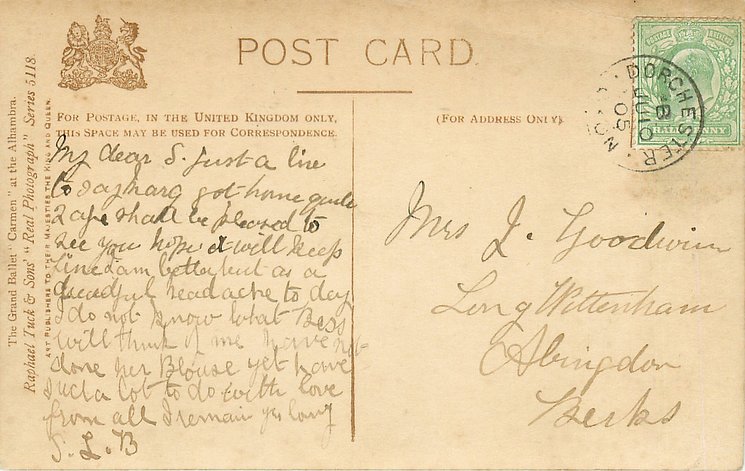 POST CARD
FOR POSTAGE, IN THE UNITED KINGDOM ONLY,
THIS SPACE MAY BE USED FOR CORRESPONDENCE.
(FOR ADDRESS ONLY).
The Grand Ballet "Carmen" at the Alhambra.
Raphael Tuck & Sons' "Real Photograph" Series 5118.
ART PUBLISHERS TO THEIR MAJESTIES THE KING AND QUEEN.
My dear S. just a line
to say harg got home quite
safe shall be pleased to
see you hope it will keep
fine I am better but as a
dreadful headache to day
I do not know what Bess
will think of me have not
done her Blouse yet have
such a lot to do with love
from all I remain yrs
S. L. B
Mrs J. Goodwin
Long Wittenham
Abingdon
Berks
POSTAGE
HALFPENNY
DORCHESTER
JU 10
05